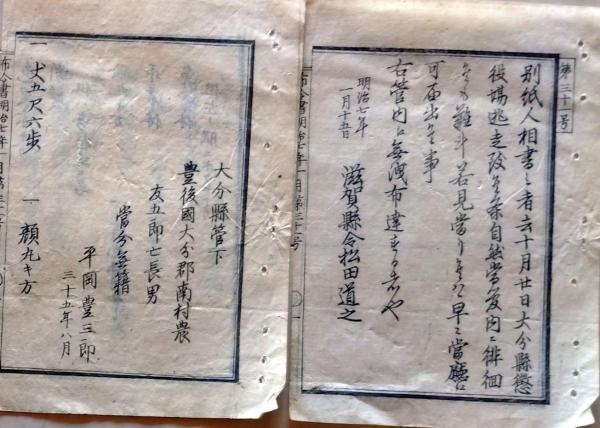 第三十一号
別紙人相書之者去十月廿日大分縣懲
役場逃走致候条自然當管内ニ徘徊
候も難斗若見當り候ハヽ早々當廳江
可届出候事
右管内江無洩布達する者也
明治七年
一月十五日
滋賀縣令松田道之
布令書明治七年一月第三十一号
大分縣管下
豊後國大分郡南村農
友五郎亡長男
當分無籍
平岡豊三郎
三十五年八月
一 丈五尺六歩
一 顔丸キ方
布令書明治七年一月第三十一号